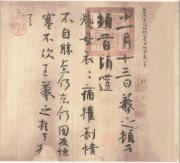 十一月十三日羲之頓首
頓首頃遘
姨母哀哀痛摧剝情
不自勝奈何奈何因反慘
塞不次王羲之頓首頓
首